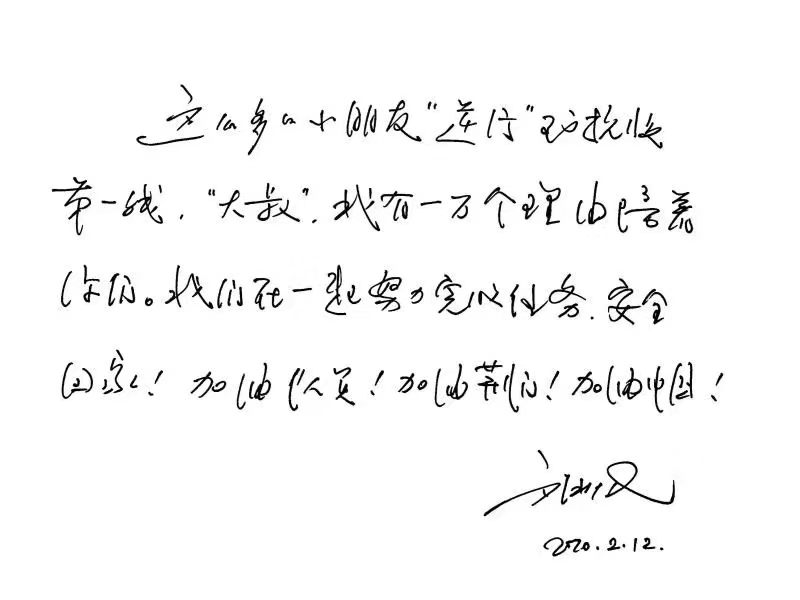 这么多的小朋友“逆行”到抗疫
第一线，“大叔”，我有一万个理由陪着
你们。我们在一起努力完成任务，安全
回家！加油队员！加油荆门！加油中国！
2020.2.12.